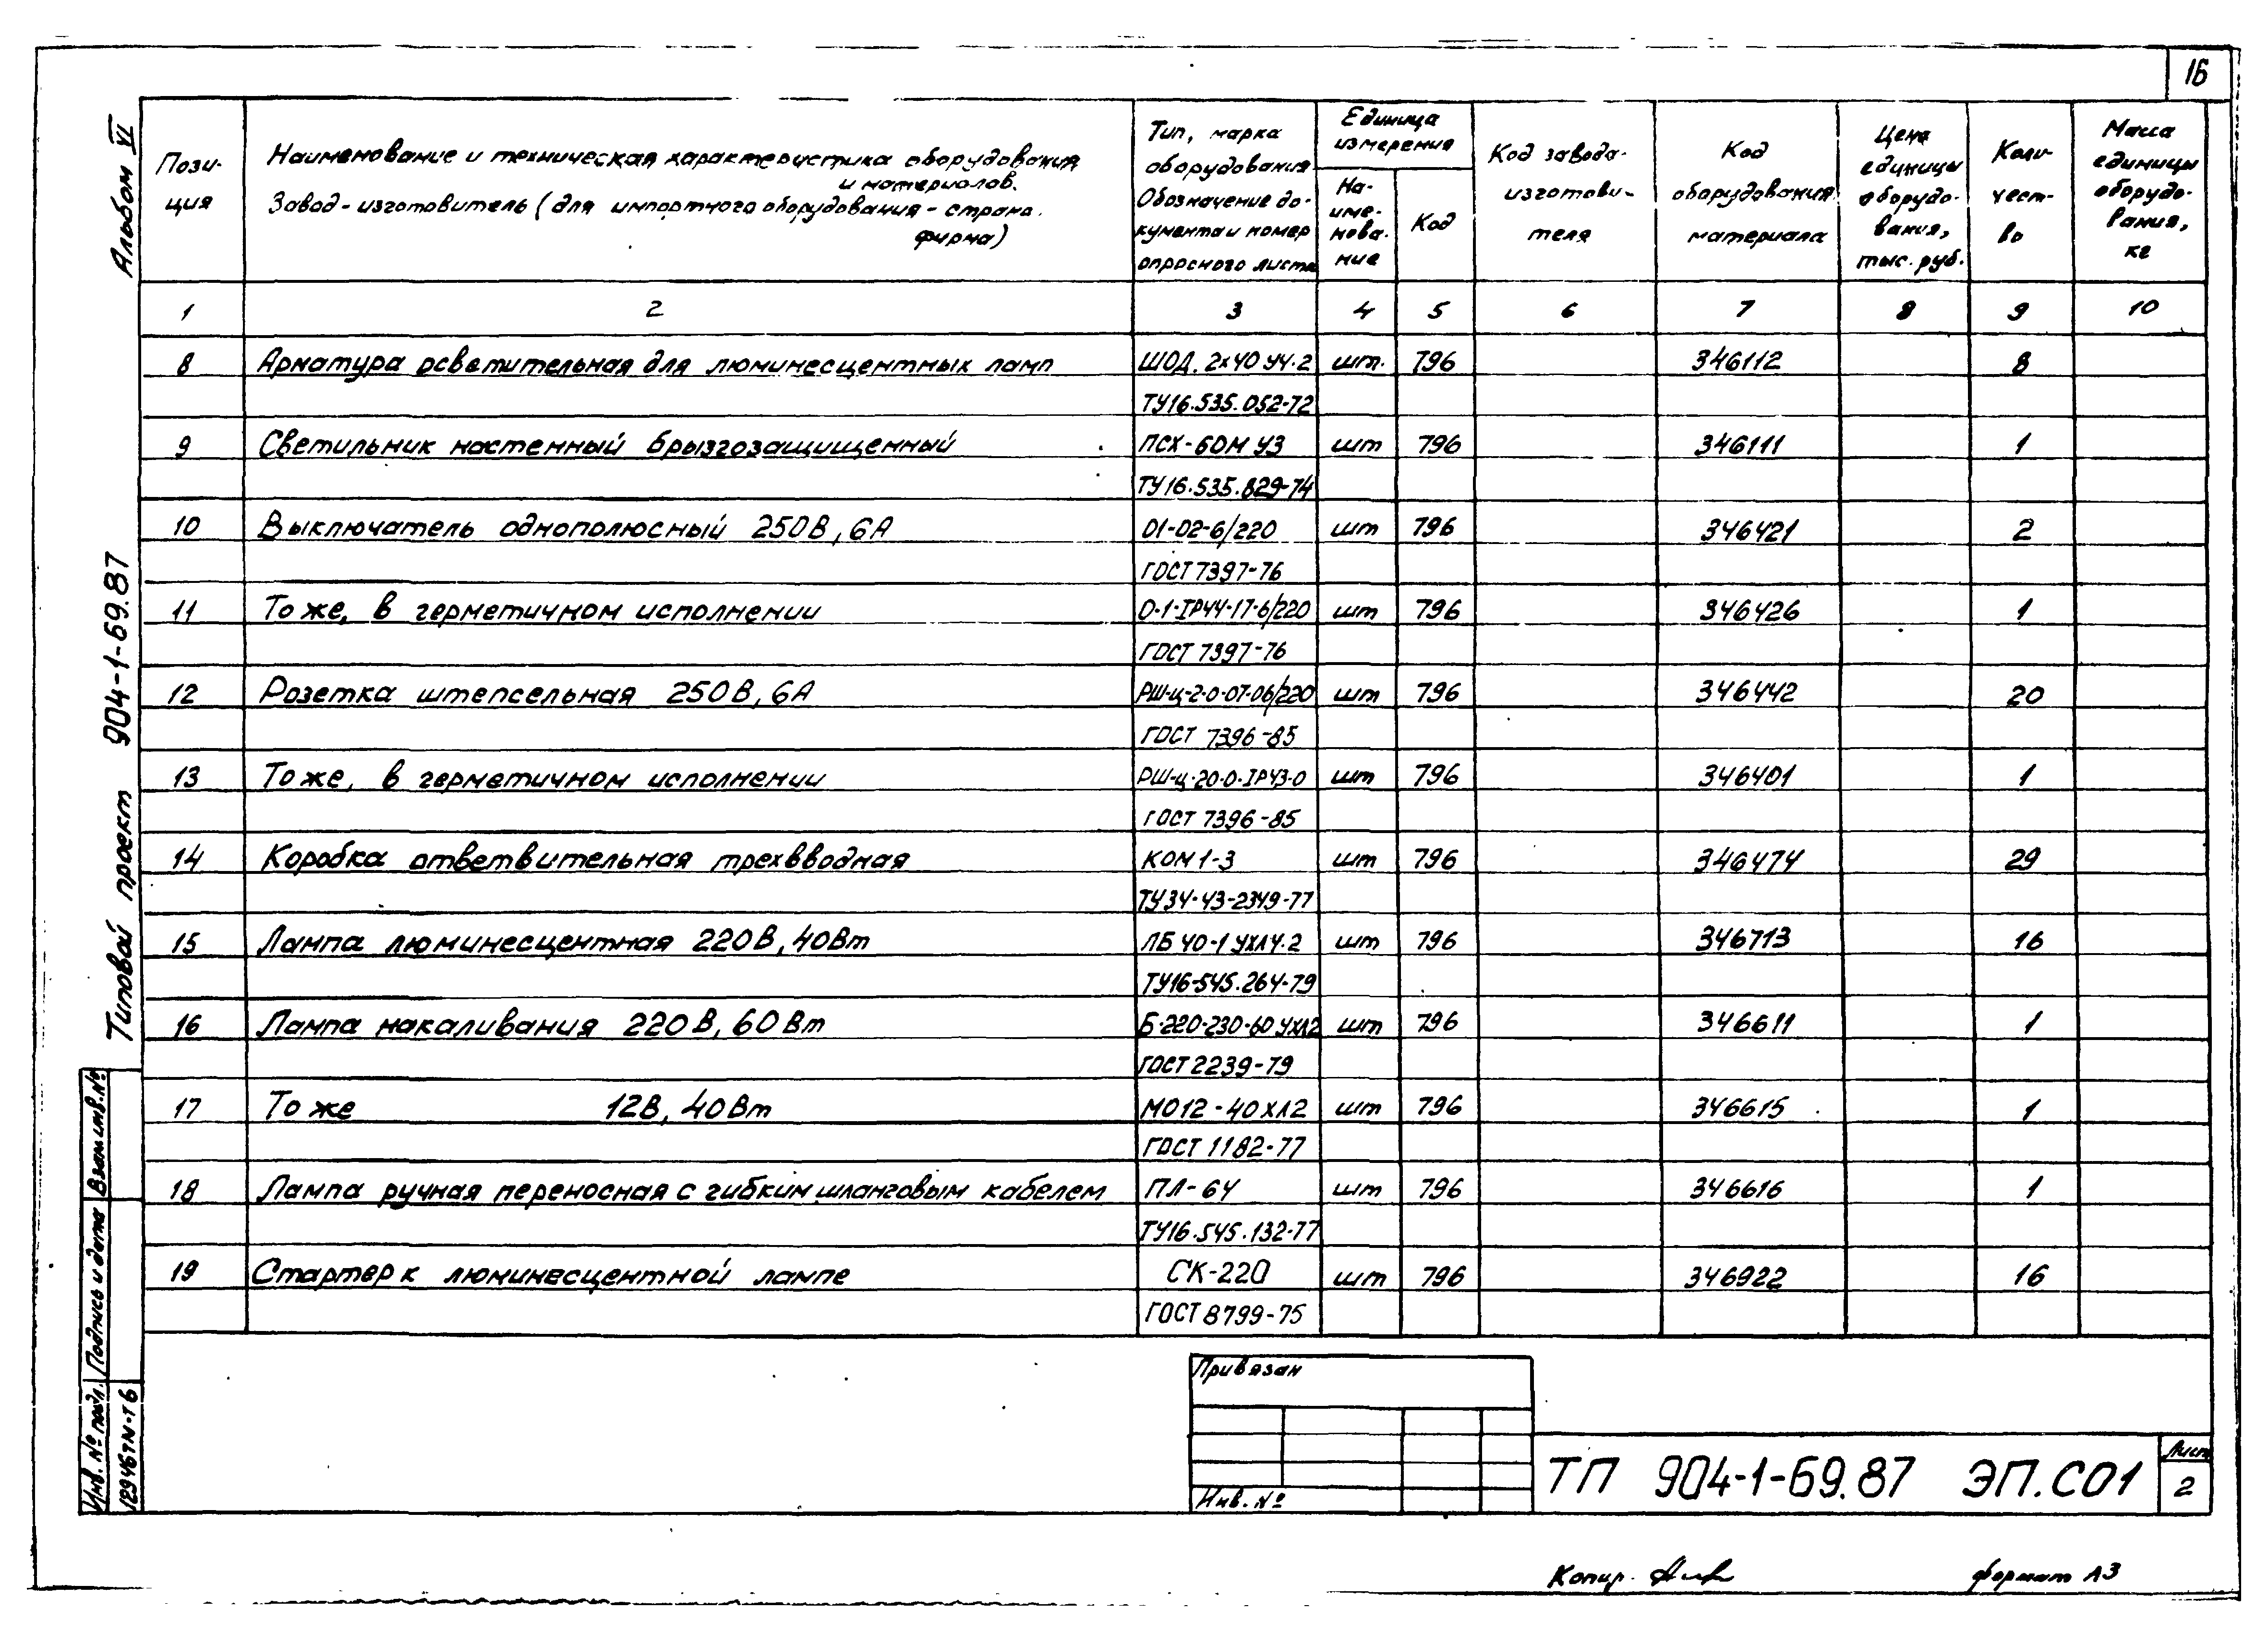 16
Альбом VI
Типовой проект 904-1-69.87
Пози-
ция
Наименование и техническая характеристика оборудования
и материалов.
Завод-изготовитель (для импортного оборудования - страна,
фирма)
Тип, марка
оборудования
Обозначение до-
кумента и номер
опросного листа
Единица
измерения
На-
име-
нова-
ние
Код
Код завода-
изготови-
теля
Код
оборудования
материала
Цена
единицы
оборудо-
вания,
тыс. руб.
Коли-
чест-
во
Масса
единицы
оборудо-
вания,
кг
1 2 3 4 5 6 7 8 9 10
8 Арматура осветительная для люминесцентных ламп ШОД. 2х40 У4.2 шт. 796 346112 8
ТУ16.535.052-72
9 Светильник настенный брызгозащищенный ПСХ-60М У3 шт 796 346111 1
ТУ16.535.829-74
10 Выключатель однополюсный 250В, 6А 01-02-6/220 шт 796 346421 2
ГОСТ 7397-76
11 То же, в герметичном исполнении О-1-IP44-17-6/220 шт 796 346426 1
ГОСТ 7397-76
12 Розетка штепсельная 250В, 6А РШ-ц-2-0-07-06/220 шт 796 346442 20
ГОСТ 7396-85
13 То же, в герметичном исполнении РШ-ц-20-0-IP43-0 шт 796 346401 1
ГОСТ 7396-85
14 Коробка ответвительная трехвводная КОМ 1-3 шт 796 346474 29
ТУ34-43-2349-77
15 Лампа люминесцентная 220В, 40Вт ЛБ 40-1 УХЛ4.2 шт 796 346713 16
ТУ16-545.264-79
16 Лампа накаливания 220В, 60Вт Б-220-230-60 УХЛ2 шт 796 346611 1
ГОСТ 2239-79
17 То же 12В, 40Вт МО12-40ХЛ2 шт 796 346615 1
ГОСТ 1182-77
18 Лампа ручная переносная с гибким шланговым кабелем ПЛ-64 шт 796 346616 1
ТУ16.545.132-77
19 Стартер к люминесцентной лампе СК-220 шт 796 346922 16
ГОСТ 8799-75
Взам.инв.№
Подпись и дата
Инв. № подл.
12946ТN-Т6
Привязан
Инв. №
ТП 904-1-69.87 ЭП.СО1
Лист
2
Копир.
формат А3